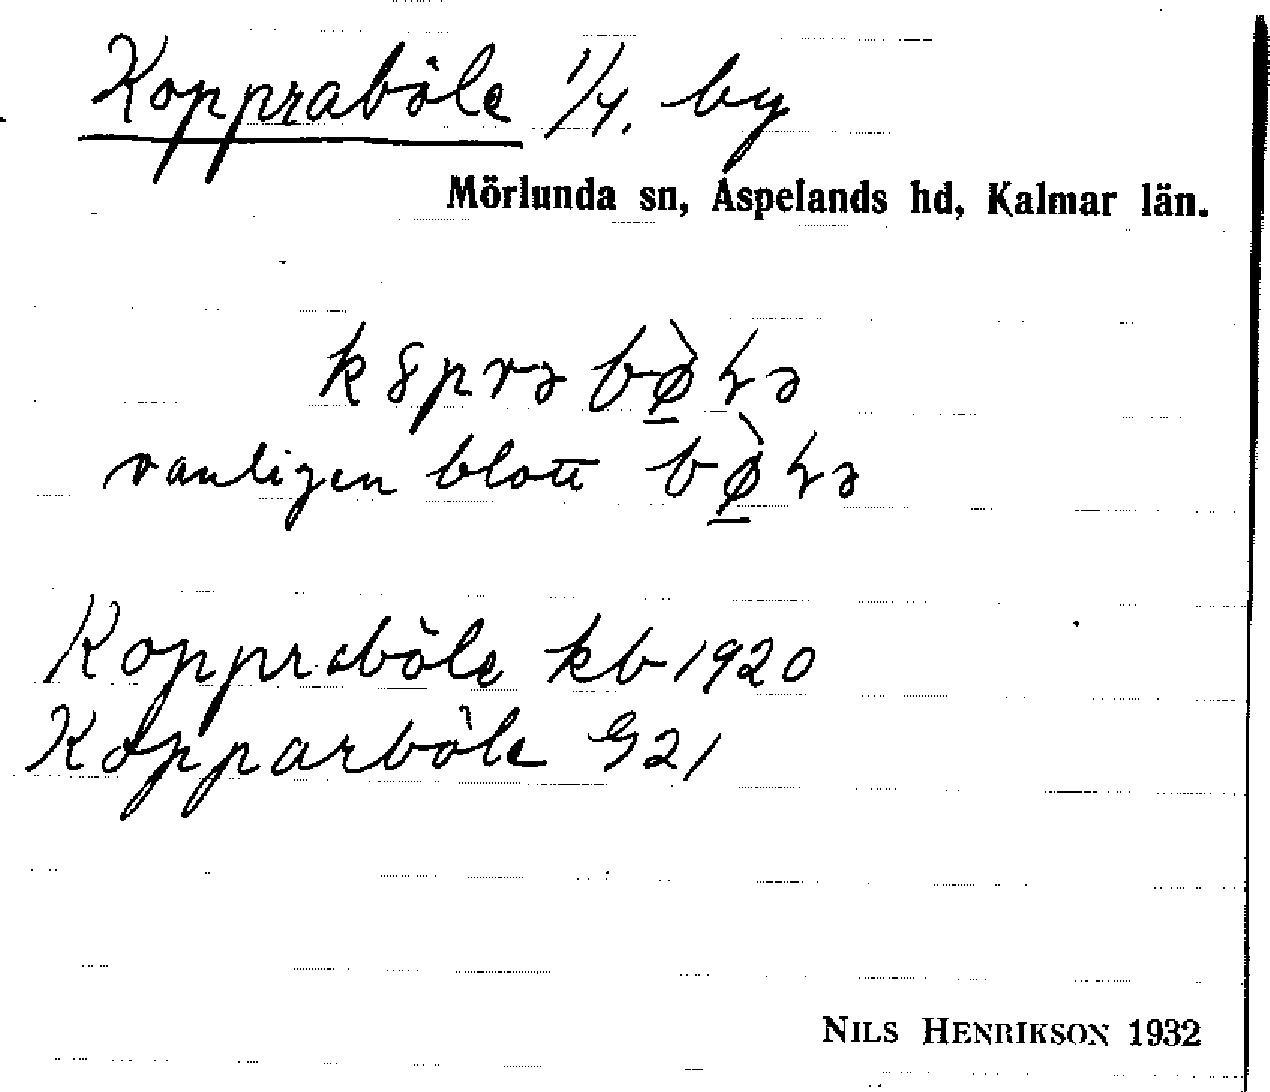 Koppraböle 1/4. by
Mörlunda sn, Aspelands hd, Kalmar län.
vanligen blott
Koppraböle kb 1920
Kopparböle G 21
NILS HENRIKSON 1932